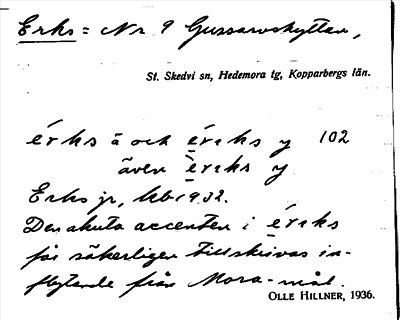 Erks = Nr 9 Gussarvshyttan,
St. Skedvi sn, Hedemora tg, Kopparbergs län.
érks ä och éreks y 102
även èreks y
Erks jr, kb 1932.
Den akuta accenten i éreks
får säkerligen tillskrivas in-
flytande från Mora-mål.
OLLE HILLNER, 1936.